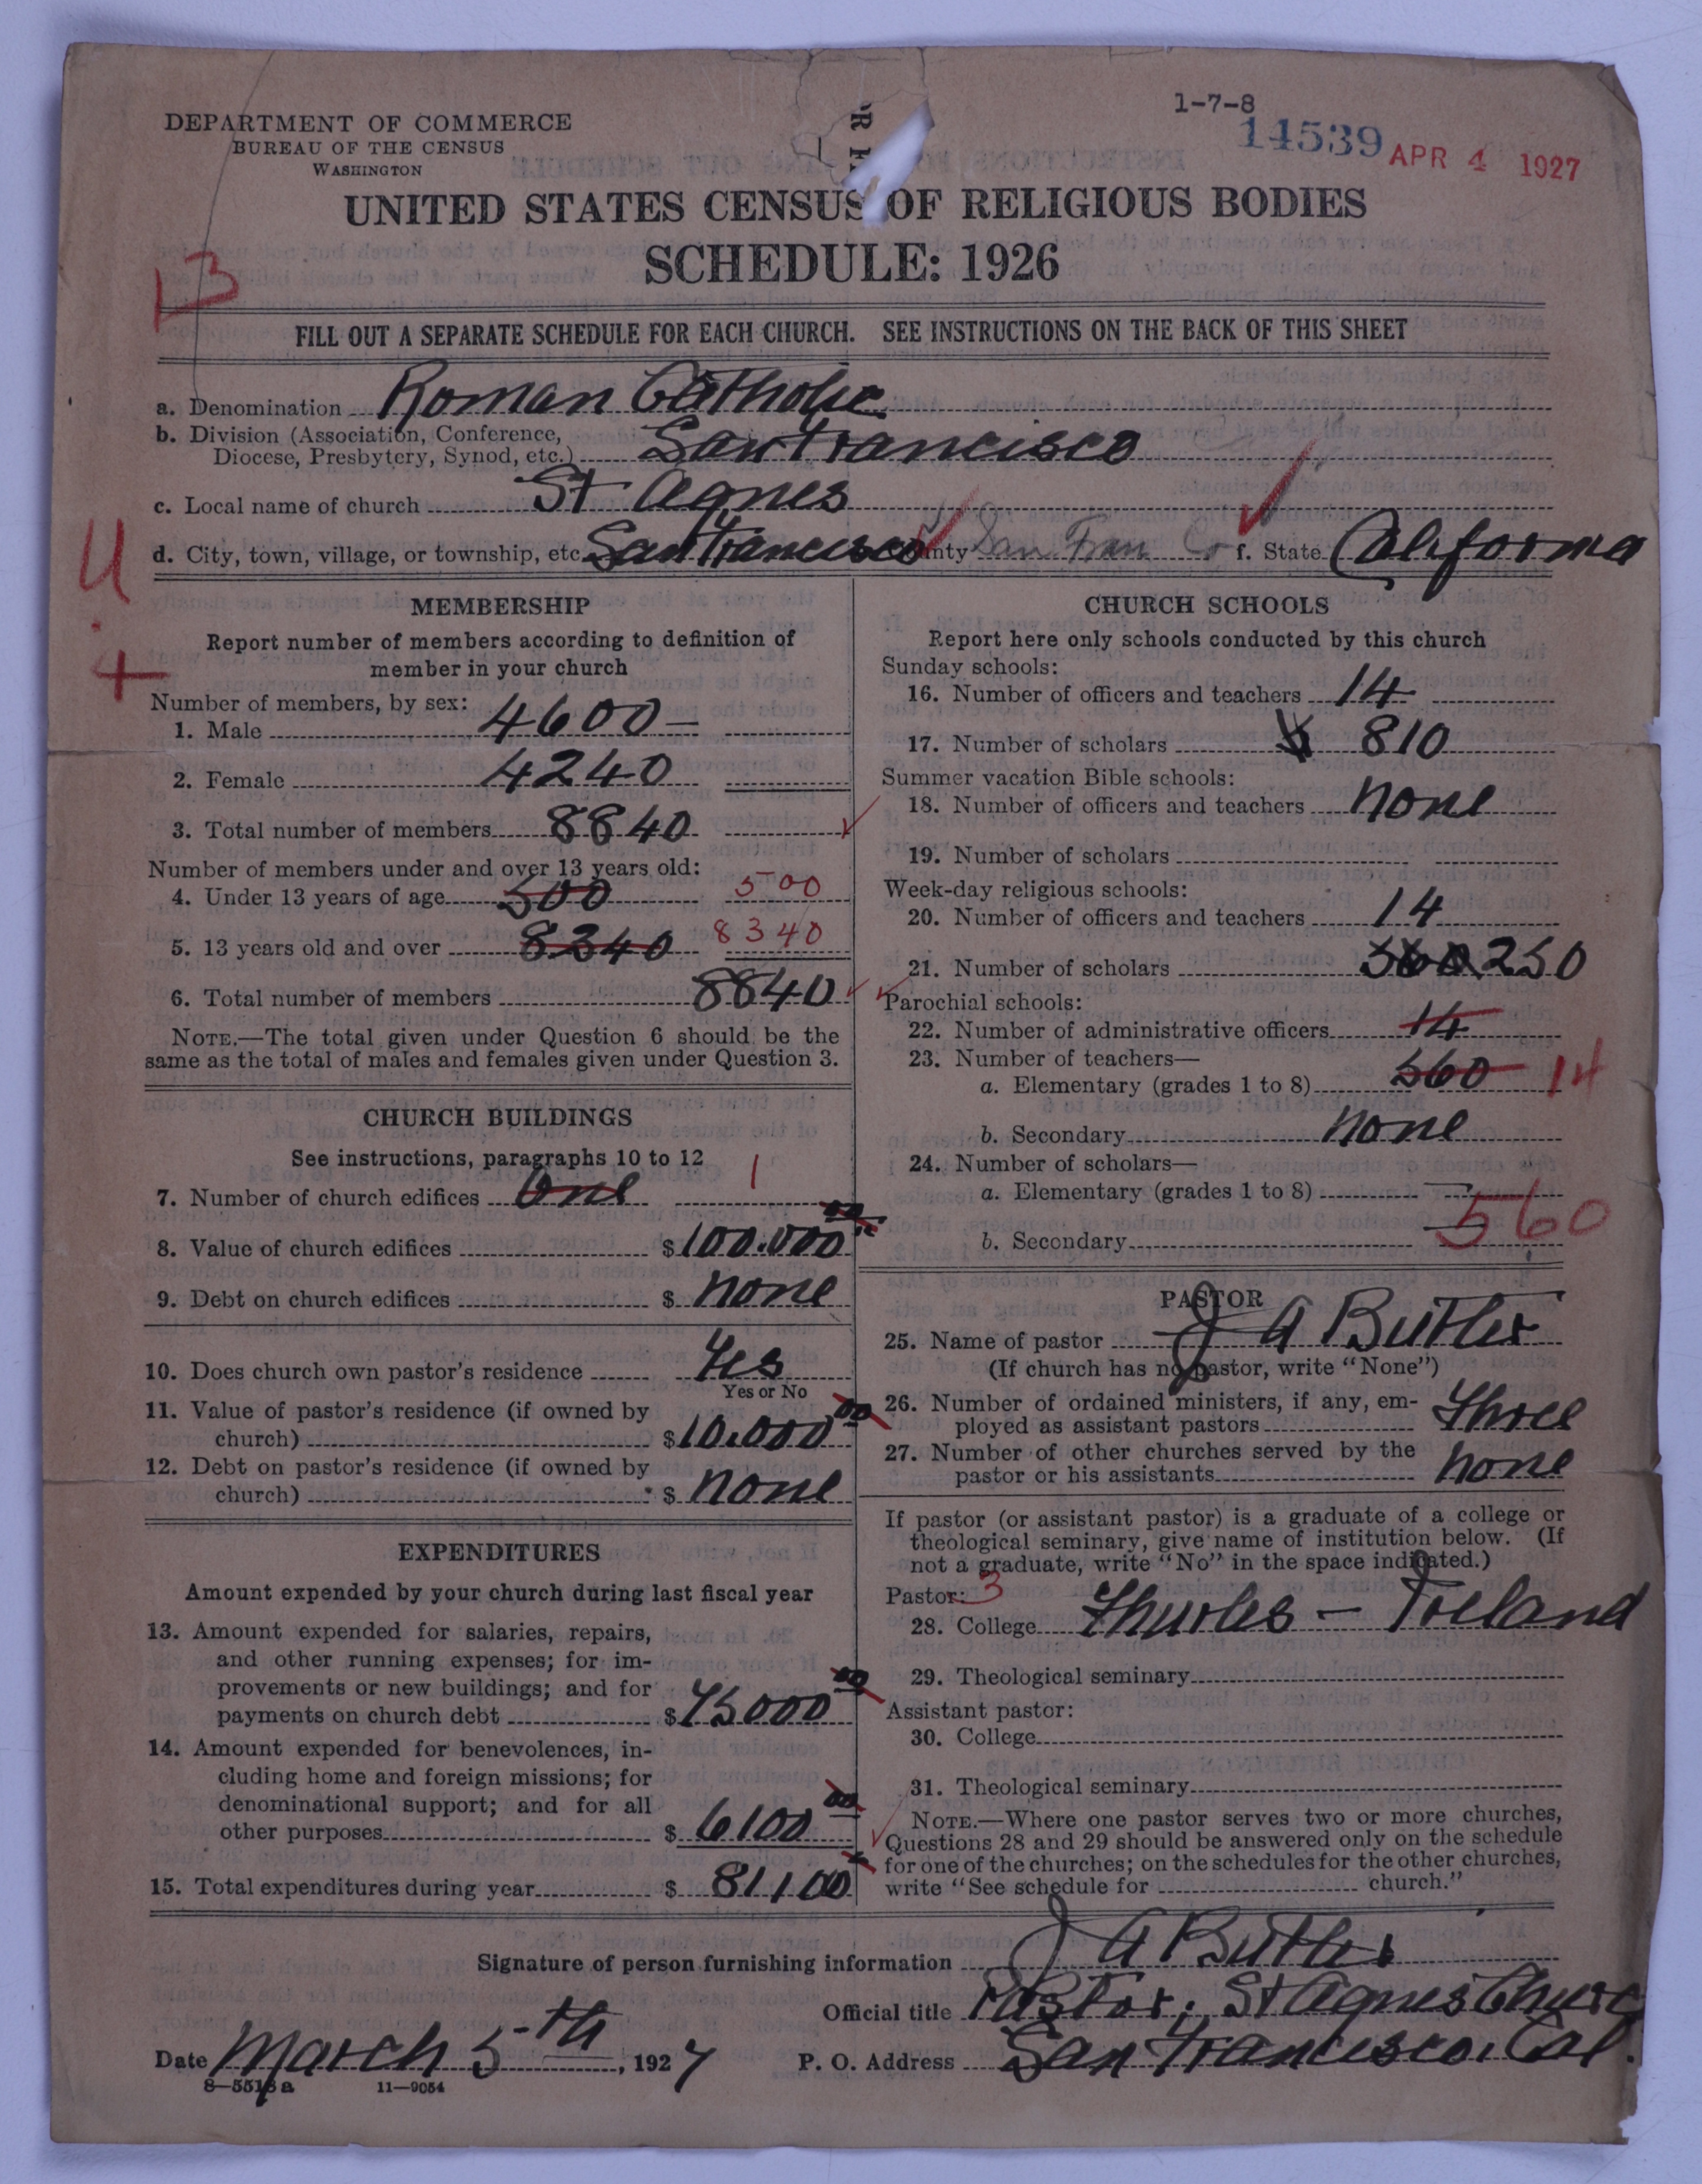 1-7-8
14539 APR 4 1927
DEPARTMENT OF COMMERCE
BUREAU OF THE CENSUS
WASHINGTON
UNITED STATES CENSUS OF RELIGIOUS BODIES
SCHEDULE: 1926
B
FILL OUT A SEPARATE SCHEDULE FOR EACH CHURCH. SEE INSTRUCTIONS ON THE BACK OF THIS SHEET
a. Denomination Roman Catholic
b. Division (Association, Conference,
Diocese, Presbytery, Synod, etc.) San Francisco
c. Local name of church St Agnes
d. City, town, village, or township, etc. San Francisco County San Fran Co f. State California
U
+
MEMBERSHIP
Report number of members according to definition of
member in your church
Number of members, by sex:
1. Male 4600 —
2. Female 4240
3. Total number of members 8840
Number of members under and over 13 years old:
4. Under 13 years of age 500 500
5. 13 years old and over 8340 8340
6. Total number of members 8840
NOTE.—The total given under Question 6 should be the
same as the total of males and females given under Question 3.
CHURCH BUILDINGS
See instructions, paragraphs 10 to 12
7. Number of church edifices One 1
8. Value of church edifices $ 100.000 00
9. Debt on church edifices $ none
10. Does church own pastor's residence Yes
Yes or No
11. Value of pastor's residence (if owned by
church) $ 10.000 00
12. Debt on pastor's residence (if owned by
church) $ none
EXPENDITURES
Amount expended by your church during last fiscal year
13. Amount expended for salaries, repairs,
and other running expenses; for im-
provements or new buildings; and for
payments on church debt $ 75000 00
14. Amount expended for benevolences, in-
cluding home and foreign missions; for
denominational support; and for all
other purposes $ 6100 00
15. Total expenditures during year $ 81100
CHURCH SCHOOLS
Report here only schools conducted by this church
Sunday schools:
16. Number of officers and teachers 14
17. Number of scholars 810
Summer vacation Bible schools:
18. Number of officers and teachers none
19. Number of scholars
Week-day religious schools:
20. Number of officers and teachers 14
21. Number of scholars 560 250
Parochial schools:
22. Number of administrative officers 14
23. Number of teachers—
a. Elementary (grades 1 to 8) 560 14
b. Secondary none
24. Number of scholars—
a. Elementary (grades 1 to 8) 560
b. Secondary
PASTOR
25. Name of pastor J A Butler
(If church has no pastor, write "None")
26. Number of ordained ministers, if any, em-
ployed as assistant pastors Three
27. Number of other churches served by the
pastor or his assistants none
If pastor (or assistant pastor) is a graduate of a college or
theological seminary, give name of institution below. (If
not a graduate, write "No" in the space indicated.)
Pastor: 3
28. College Thurles — Ireland
29. Theological seminary
Assistant pastor:
30. College
31. Theological seminary
NOTE.—Where one pastor serves two or more churches,
Questions 28 and 29 should be answered only on the schedule
for one of the churches; on the schedules for the other churches,
write "See schedule for church."
Signature of person furnishing information J A Butler
Official title Pastor, St Agnes Church
Date March 5th, 1927 P. O. Address San Francisco, Cal.
8—5518a 11—9054